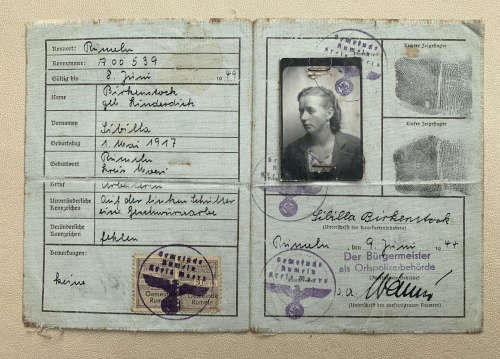 Kennort: Rumeln
Kennnummer: A 00539
Gültig bis 8. Juni 1949
Name Birkenstock
geb. Rinderdick
Vornamen Sibilla
Geburtstag 1. Mai 1917
Geburtsort Rumeln
Kreis Moers
Beruf Arbeiterin
Unveränderliche Kennzeichen Auf der linken Schulter
eine
Veränderliche Kennzeichen fehlen
Bemerkungen: keine
Gemeinde
Rumeln
Kreis Moers
Gemeinde
Rumeln
Gemeinde
Rumeln
Kreis Moers
Rechter Zeigefinger
Linker Zeigefinger
Sibilla Birkenstock
(Unterschrift des Kennkarteninhabers)
Rumeln, den 9. Juni 1944
Der Bürgermeister
als Ortspolizeibehörde
Gemeinde
Rumeln
Kreis Moers
(Unterschrift des ausfertigenden Beamten)